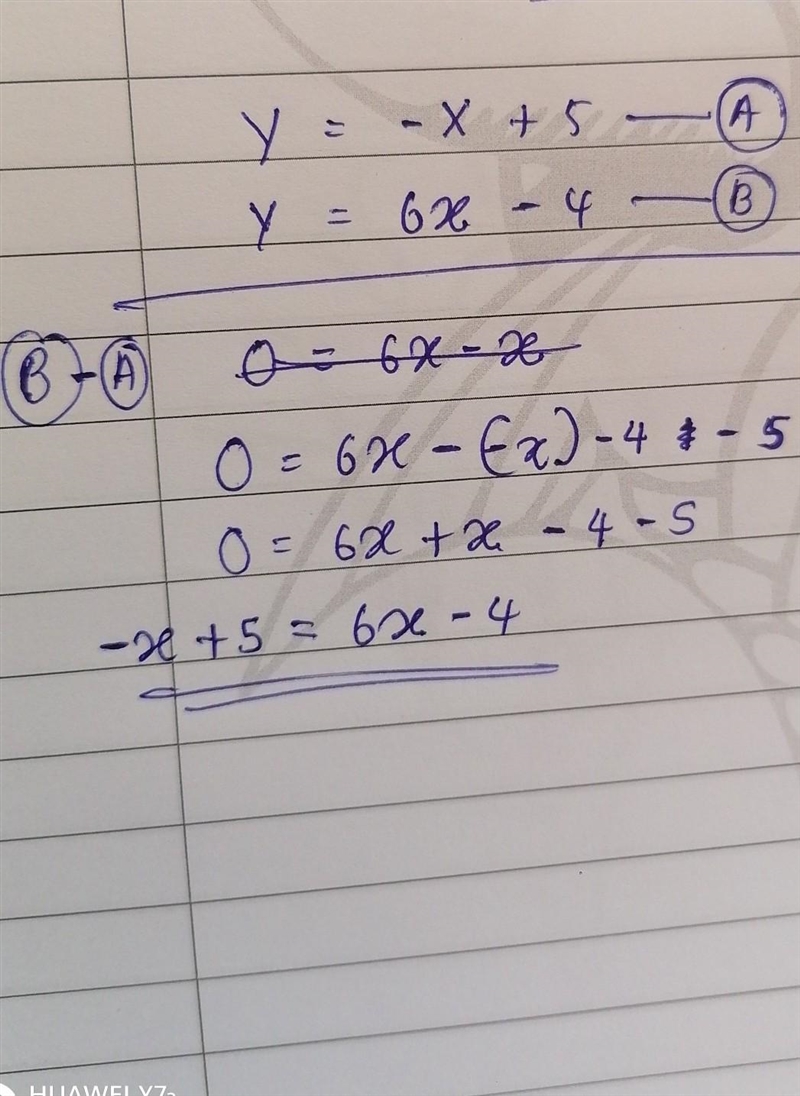 y = -x + 5 — A
y = 6x - 4 — B
B - A 0 = 6x - x
0 = 6x - (-x) - 4 - 5
0 = 6x + x - 4 - 5
-x + 5 = 6x - 4